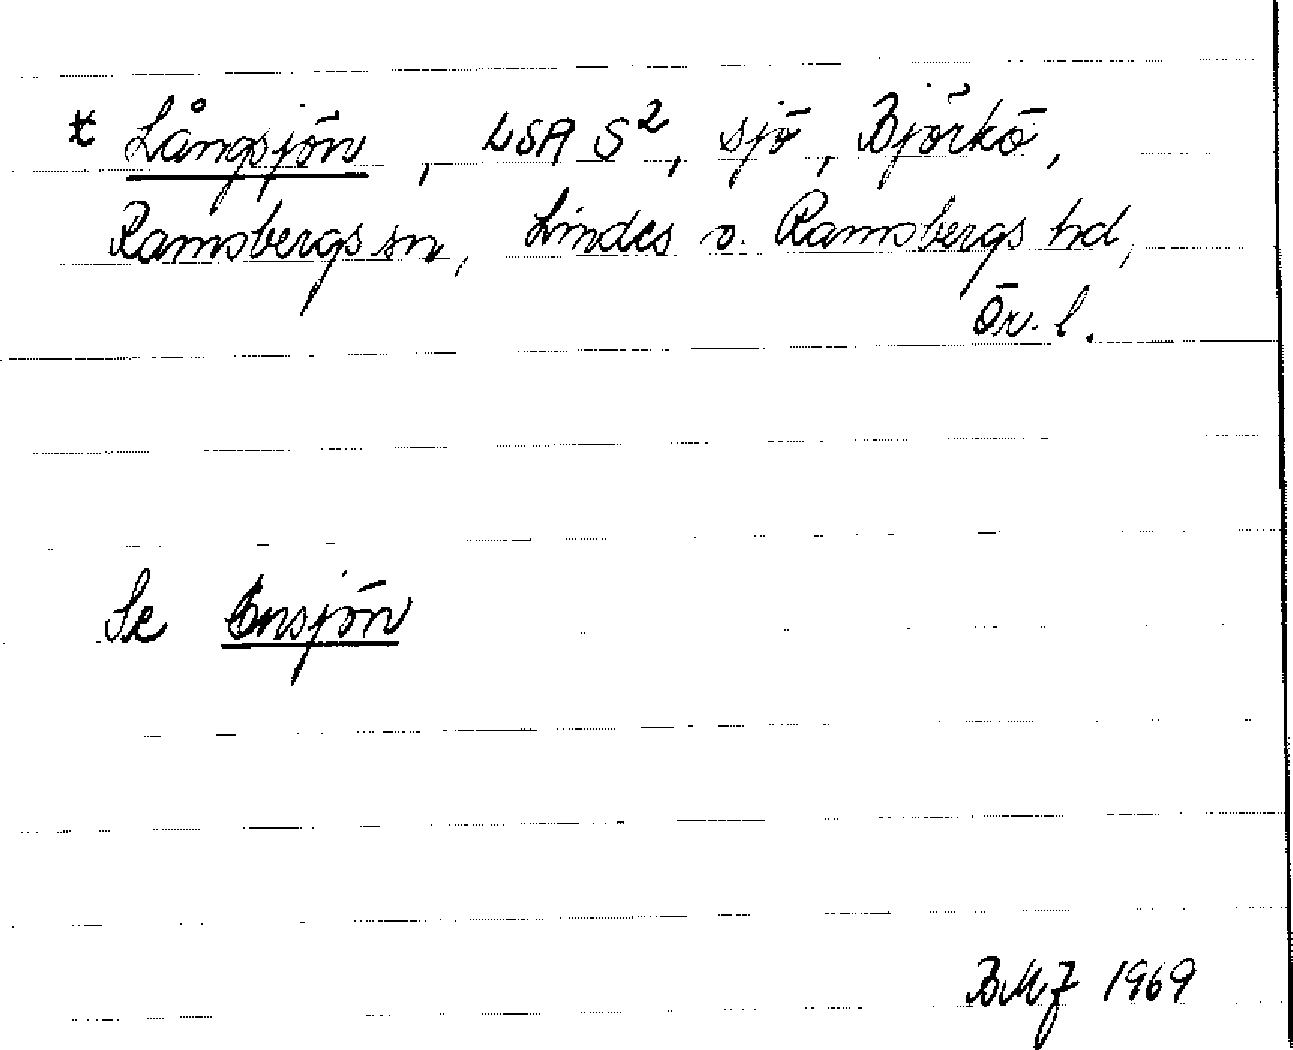 * Långsjön, LSA S², sjö, Björkö,
Ramsbergs sn, Lindes o. Ramsbergs hd,
Ör. l.
Se Ensjön
BMJ 1969